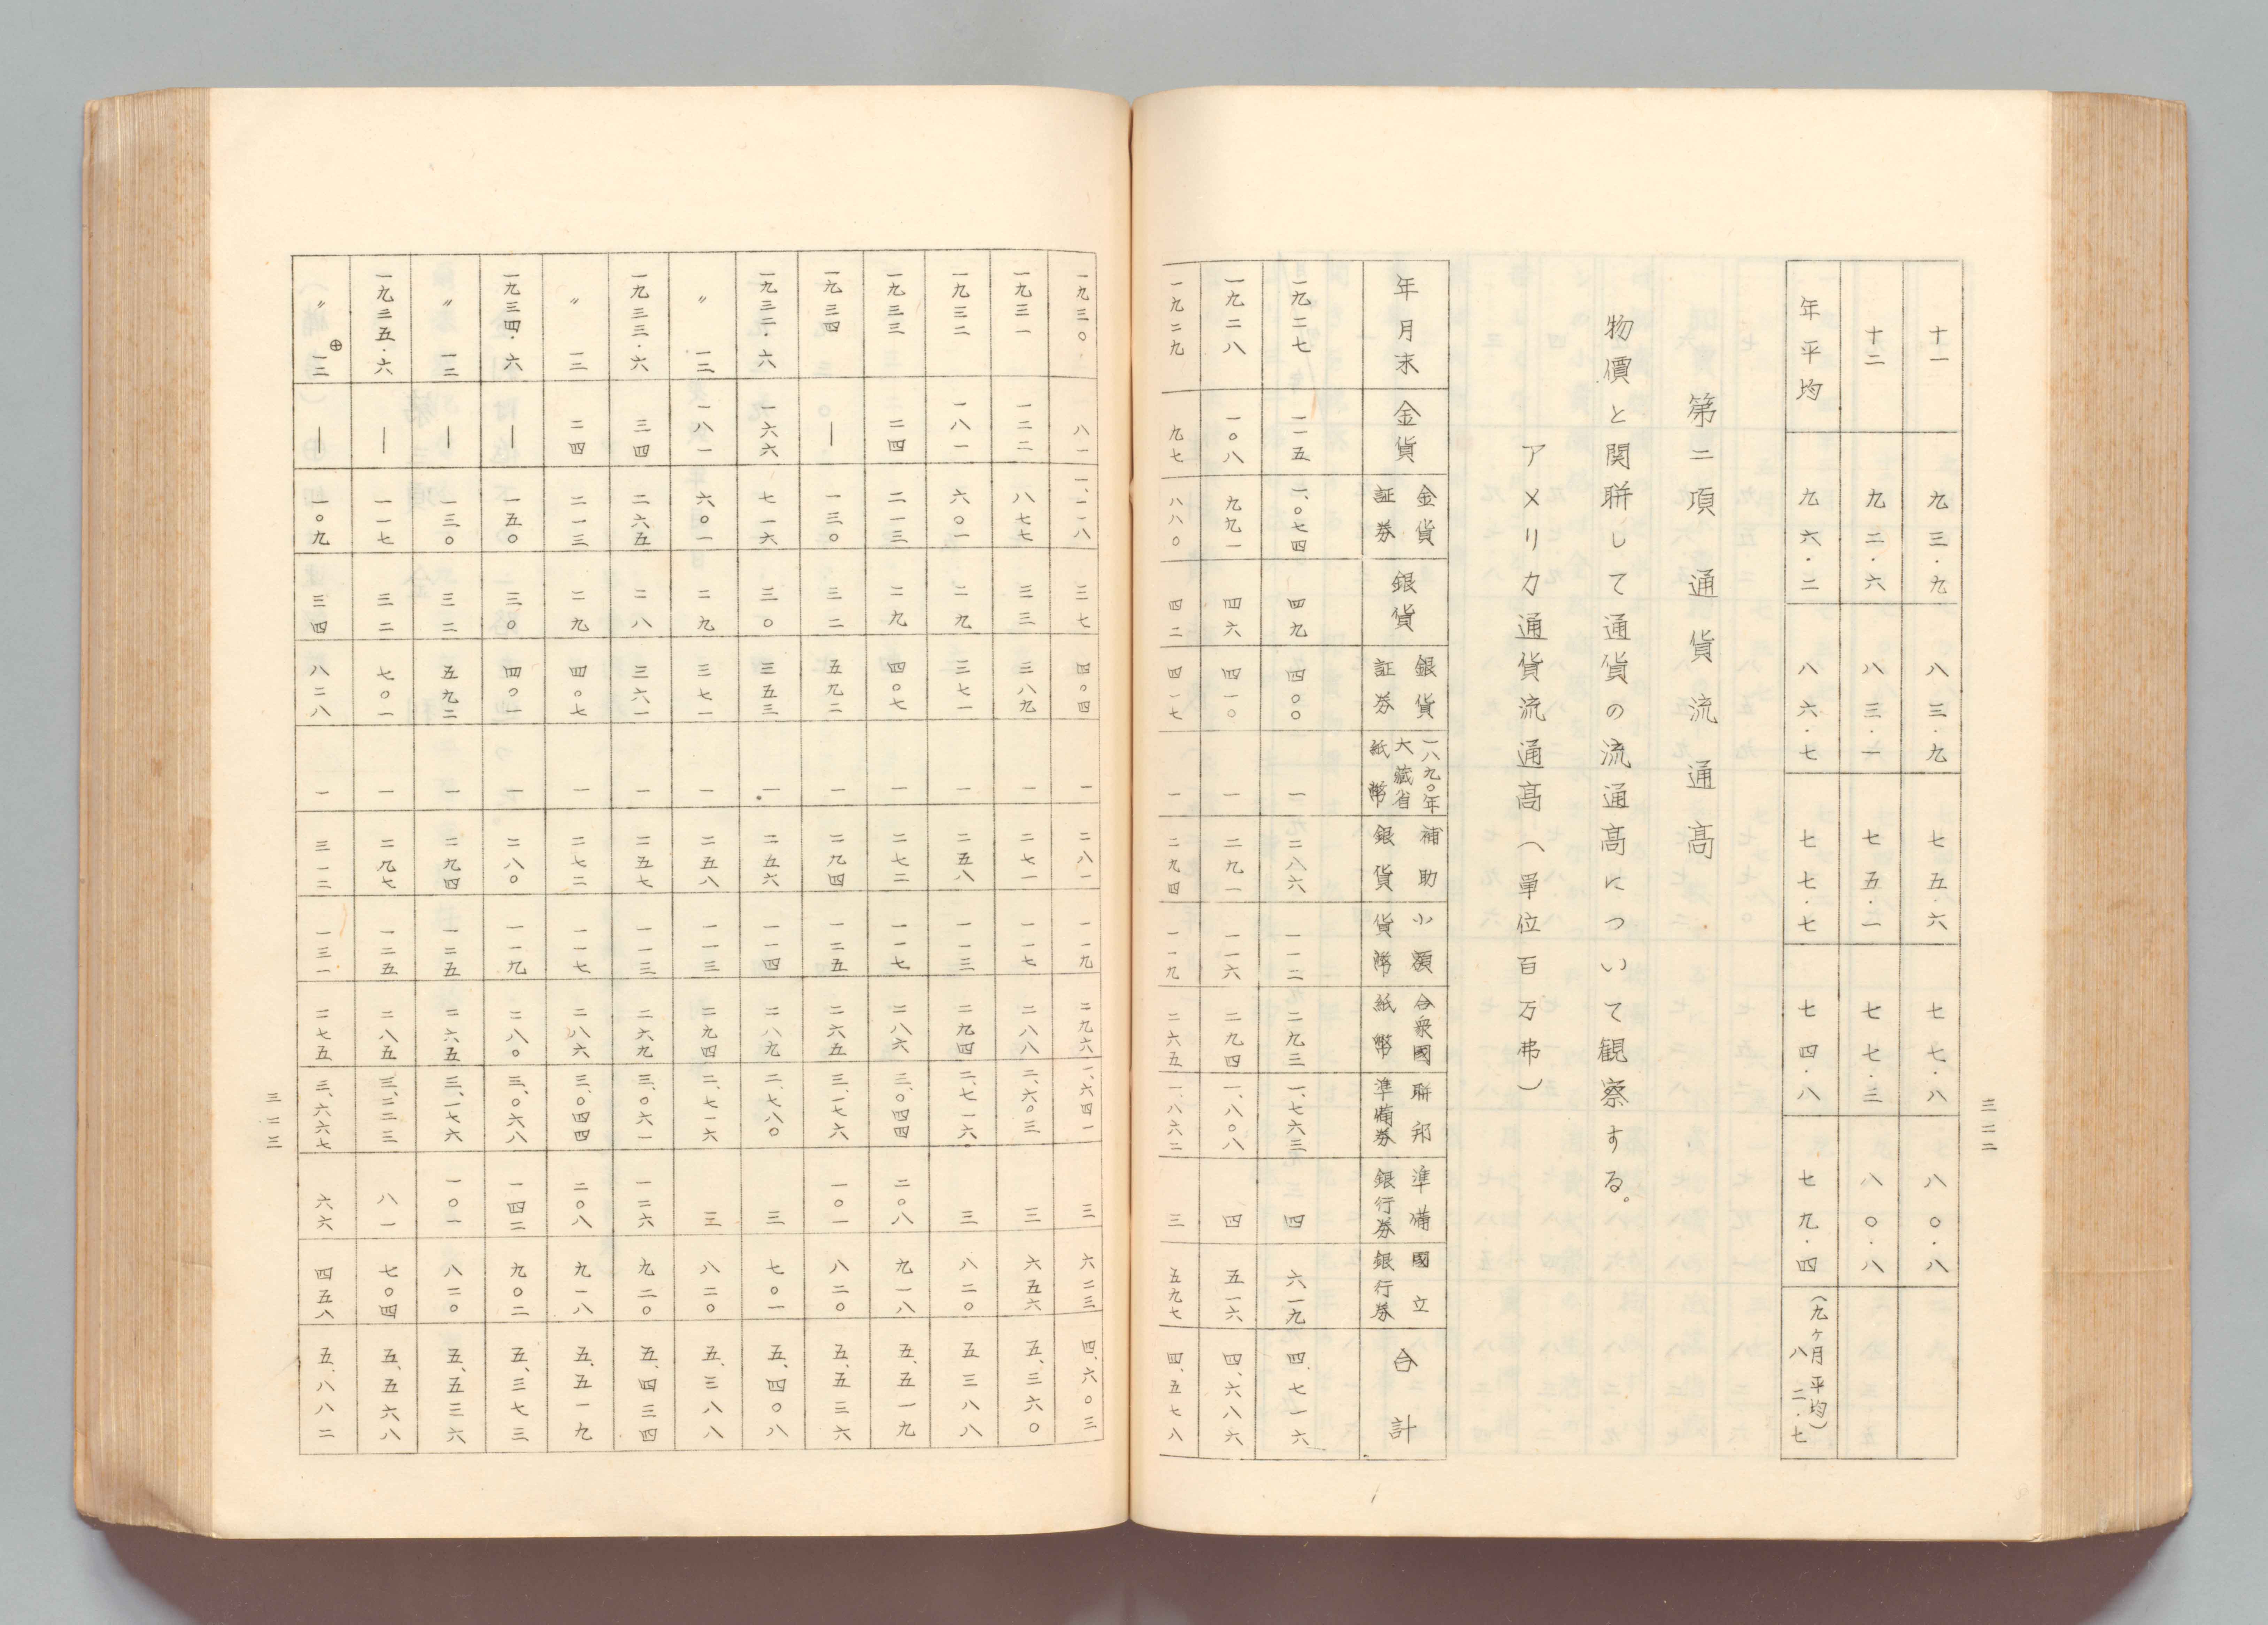 十一 九三・九 八三・九 七五・六 七七・八 八〇・八
十二 九二・六 八三・一 七五・一 七七・三 八〇・八
年平均 九六・二 八六・七 七七・七 七四・八 七九・四 (九ヶ月平均)八二・七
第二項 通貨流通高
物價と関聯して通貨の流通高について観察する。
アメリカ通貨流通高(單位百万弗)
年月末 金貨 金貨証券 銀貨 銀貨証券 一八九〇年大藏省紙幣 補助銀貨 小額貨幣 合衆國紙幣 聯邦準備券 準備銀行券 國立銀行券 合計
一九二七 一一五 一、〇七四 四九 四〇〇 一 二八六 一一二 二九三 一、七六三 四 六一九 四、七一六
一九二八 一〇八 九九一 四六 四一〇 一 二九一 一一六 二九四 一、八〇八 四 五一六 四、六八六
一九二九 九七 八八〇 四二 四一七 一 二九四 一一九 二六五 一、八六三 三 五九七 四、五七八
三二二
一九三〇 八一 一、一一八 三七 四〇四 一 二八一 一一九 二九六 一、六四一 三 六二三 四、六〇三
一九三一 一二二 八七七 三三 三八九 一 二七一 一一七 二八八 二、六〇三 三 六五六 五、三六〇
一九三二 一八一 六〇一 二九 三七一 一 二五八 一一三 二九四 二、七一六 三 八二〇 五三八八
一九三三 二四 二一三 二九 四〇七 一 二七二 一一七 二八六 三、〇四四 二〇八 九一八 五、五一九
一九三四 ― 一三〇 三二 五九二 一 二九四 一二五 二六五 三、一七六 一〇一 八二〇 五、五三六
一九三二・六 一六六 七一六 三〇 三五三 一 二五六 一一四 二八九 二、七八〇 三 七〇一 五、四〇八
〃 一二 一八一 六〇一 二九 三七一 一 二五八 一一三 二九四 二、七一六 三 八二〇 五、三八八
一九三三・六 三四 二六五 二八 三六一 一 二五七 一一三 二六九 三、〇六一 一二六 九二〇 五、四三四
〃 一二 二四 二一三 二九 四〇七 一 二七二 一一七 二八六 三、〇四四 二〇八 九一八 五、五一九
一九三四・六 ― 一五〇 三〇 四〇一 一 二八〇 一一九 二八〇 三、〇六八 一四二 九〇二 五、三七三
〃 一二 ― 一三〇 三二 五九二 一 二九四 一二五 二六五 三、一七六 一〇一 八二〇 五、五三六
一九三五・六 ― 一一七 三二 七〇一 一 二九七 一二五 二八五 三、二二三 八一 七〇四 五、五六八
〃 ⊕一二 ― 一〇九 三四 八二八 一 三一二 一三一 二七五 三、六六七 六六 四五八 五、八八二
三二三